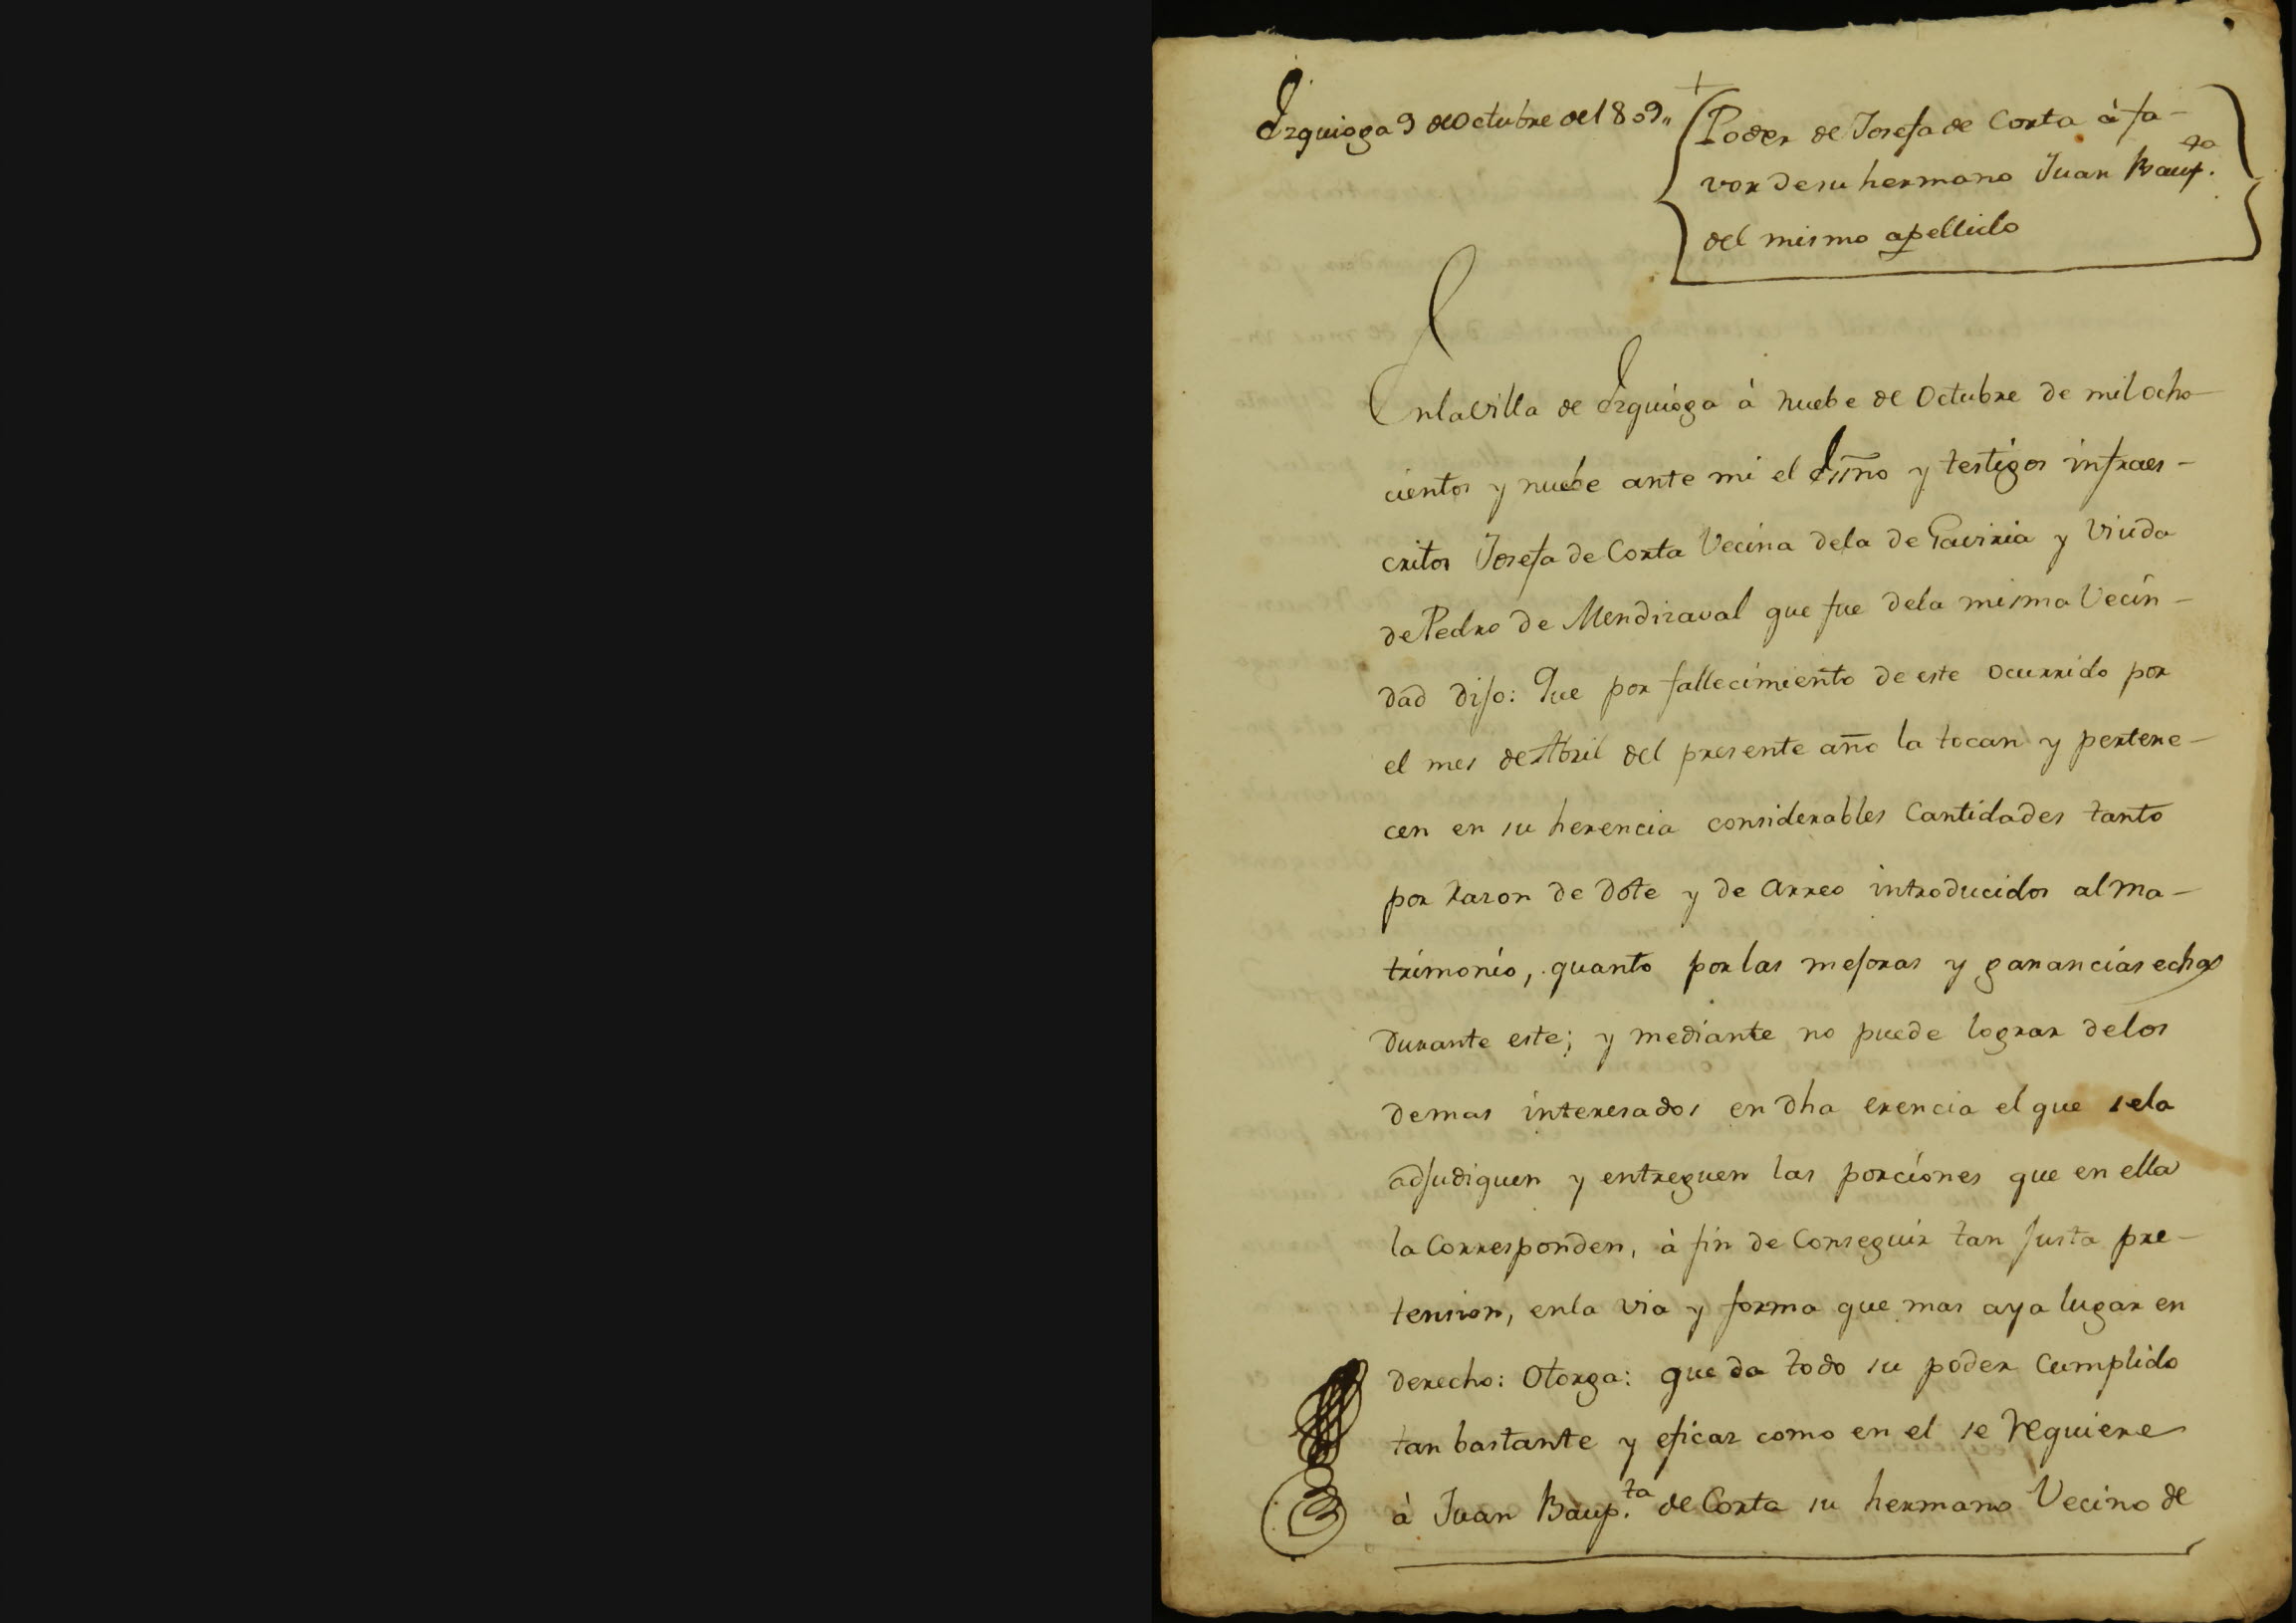 Ezquioga 9 de Octubre de 1809,,
+
Poder de Josefa de Corta à fa-
vor de su hermano Juan Baup.ta
del mismo apellido
En la Villa de Ezquioga à nuebe de Octubre de mil ocho-
cientos y nuebe ante mi el Essno y testigos infraes-
critos Josefa de Corta Vecina dela de Gaviria y Viuda
de Pedro de Mendizaval que fue dela misma Vecin-
dad dijo: Que por fallecimiento de este ocurrido por
el mes de Abril del presente año la tocan y pertene-
cen en su herencia considerables Cantidades tanto
por razon de dote y de Arreo introducidos al Ma-
trimonio, quanto por las mejoras y ganancias echas
durante este; y mediante no puede lograr delos
demas interesados en dha erencia el que sela
adjudiquen y entreguen las porciones que en ella
la Corresponden, à fin de Conseguir tan Justa pre-
tension, enla via y forma que mas aya lugar en
derecho: Otorga: que da todo su poder Cumplido
tan bastante y eficaz como en el se requiere
à Juan Baup.ta de Corta su hermano Vecino de